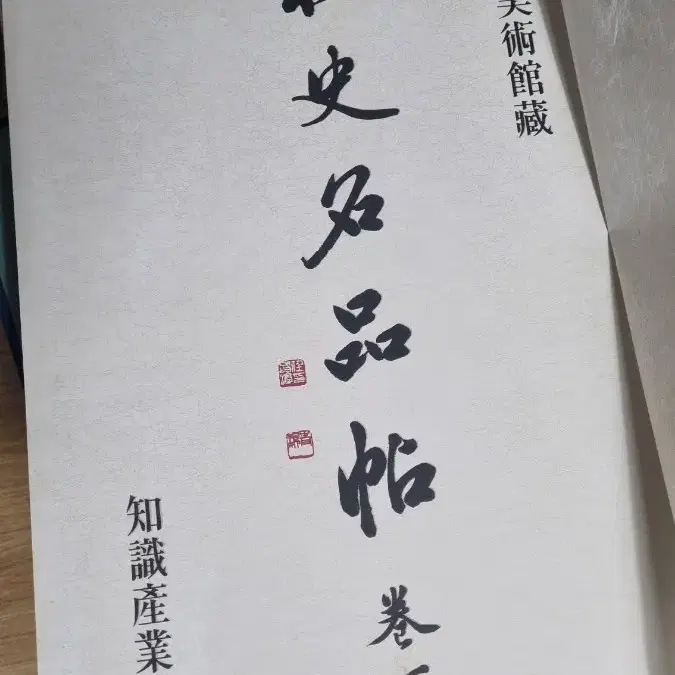 美術館藏
史名品帖 卷
知識產業